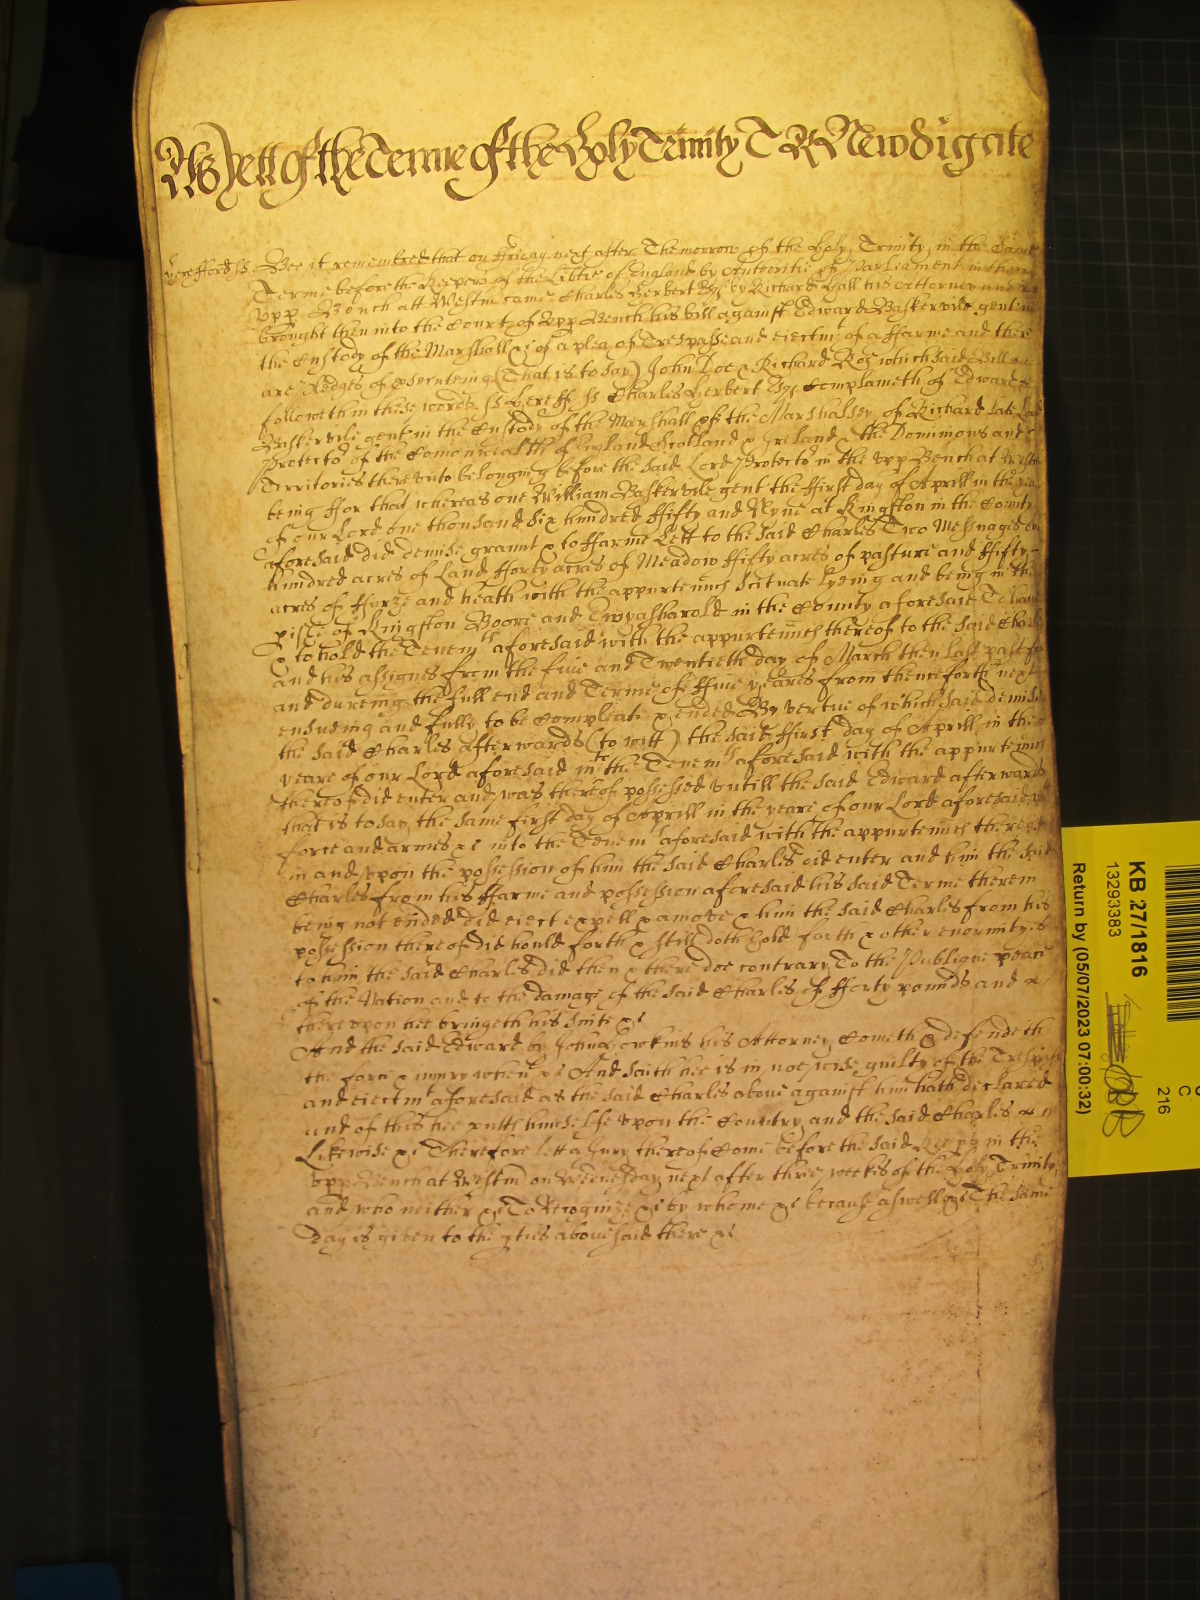 As yett of the Terme of the Holy Trinity T R Newdigate
Hereffordss Bee it remembred that on ffriday next after The morrow of the Holy Trinity in the same
Terme before the Keepers of the Libtie of England by Authoritie of Parliament in the
Upp Bench att Westm came Charles Herbert Esq by Richard Hall his Attorney and
brought then into the Court of Upp Bench his bill against Edward Baskervile gent in
the Custody of the Marshall &c of a plea of Trespasse and eiectmt of a ffarme and there
are Pledges of prosecuteing (That is to say) John Doe & Richard Roe which said Bill
followeth in these words ss Hereff ss Charles Herbert Esq Complaineth of Edward
Baskervile gent in the Custody of the Marshall of the Marshalsey of Richard late Lord
Protector of the Comonwealth of England Scotland & Ireland & the Dominions and
Territories thereunto belonging before the said Lord Protector in the Upp Bench at Westm
being ffor that whereas one William Baskervile gent the ffirst day of Aprill in the yeare
of our Lord one thousand six hundred ffifty and Nyne at Kingston in the County
aforesaid did demise graunt & to ffarme Lett to the said Charles Two Messuages
hundred acres of Land fforty acres of Meadow ffifty acres of pasture and ffifty
acres of ffurze and heath with the appurtenncs Scituate Lyeing and being in the
pishe of Kingston Boore and Ewyasharold in the County aforesaid To have
& to hold the Tenemts aforesaid with the appurtenncs thereof to the said Charles
and his assignes from the five and Twentieth day of March then last past for
and dureing the full end and Terme of ffive yeares from thenceforth next
ensueing and fully to be Compleate & ended By vertue of which said demise
the said Charles afterwards (to witt) the said ffirst day of Aprill in the
yeare of our Lord aforesaid into the Tenemts aforesaid with the appurtenncs
thereof did enter and was thereof possessed untill the said Edward afterwards
that is to say the same first day of Aprill in the yeare of our Lord aforesaid with
force and armes &c into the Tenemts aforesaid with the appurtenncs thereof
in and upon the possession of him the said Charles did enter and him the said
Charles from his ffarme and possession aforesaid his said Terme therein
being not ended did eiect expell & amove & him the said Charles from his
possession thereof did hould forth & still doth hold forth & other enormityes
to him the said Charles did then & there doe contrary To the Publique peace
of the Nation and to the damage of the said Charles of fforty pounds and
thereupon hee bringeth his suite &c
And the said Edward by John his Attorney Cometh & defendeth
the force & iniury when &c And saith hee is in noe wise guilty of the Trespasse
and eiectmt aforesaid as the said Charles above against him hath declared
and of this hee putts himselfe upon the Country and the said Charles
Likewise &c Therefore lett a Jury thereof Come before the said Keeps in the
Upp Bench at Westm on Wednesday next after three weekes of the Holy Trinity
and who neither &c To Recognize &c by whome &c because aswell &c The same
day is given to the pties abovesaid there &c
KB 27/1816
13293383
Return by (05/07/2023 07:00:32)
C
216